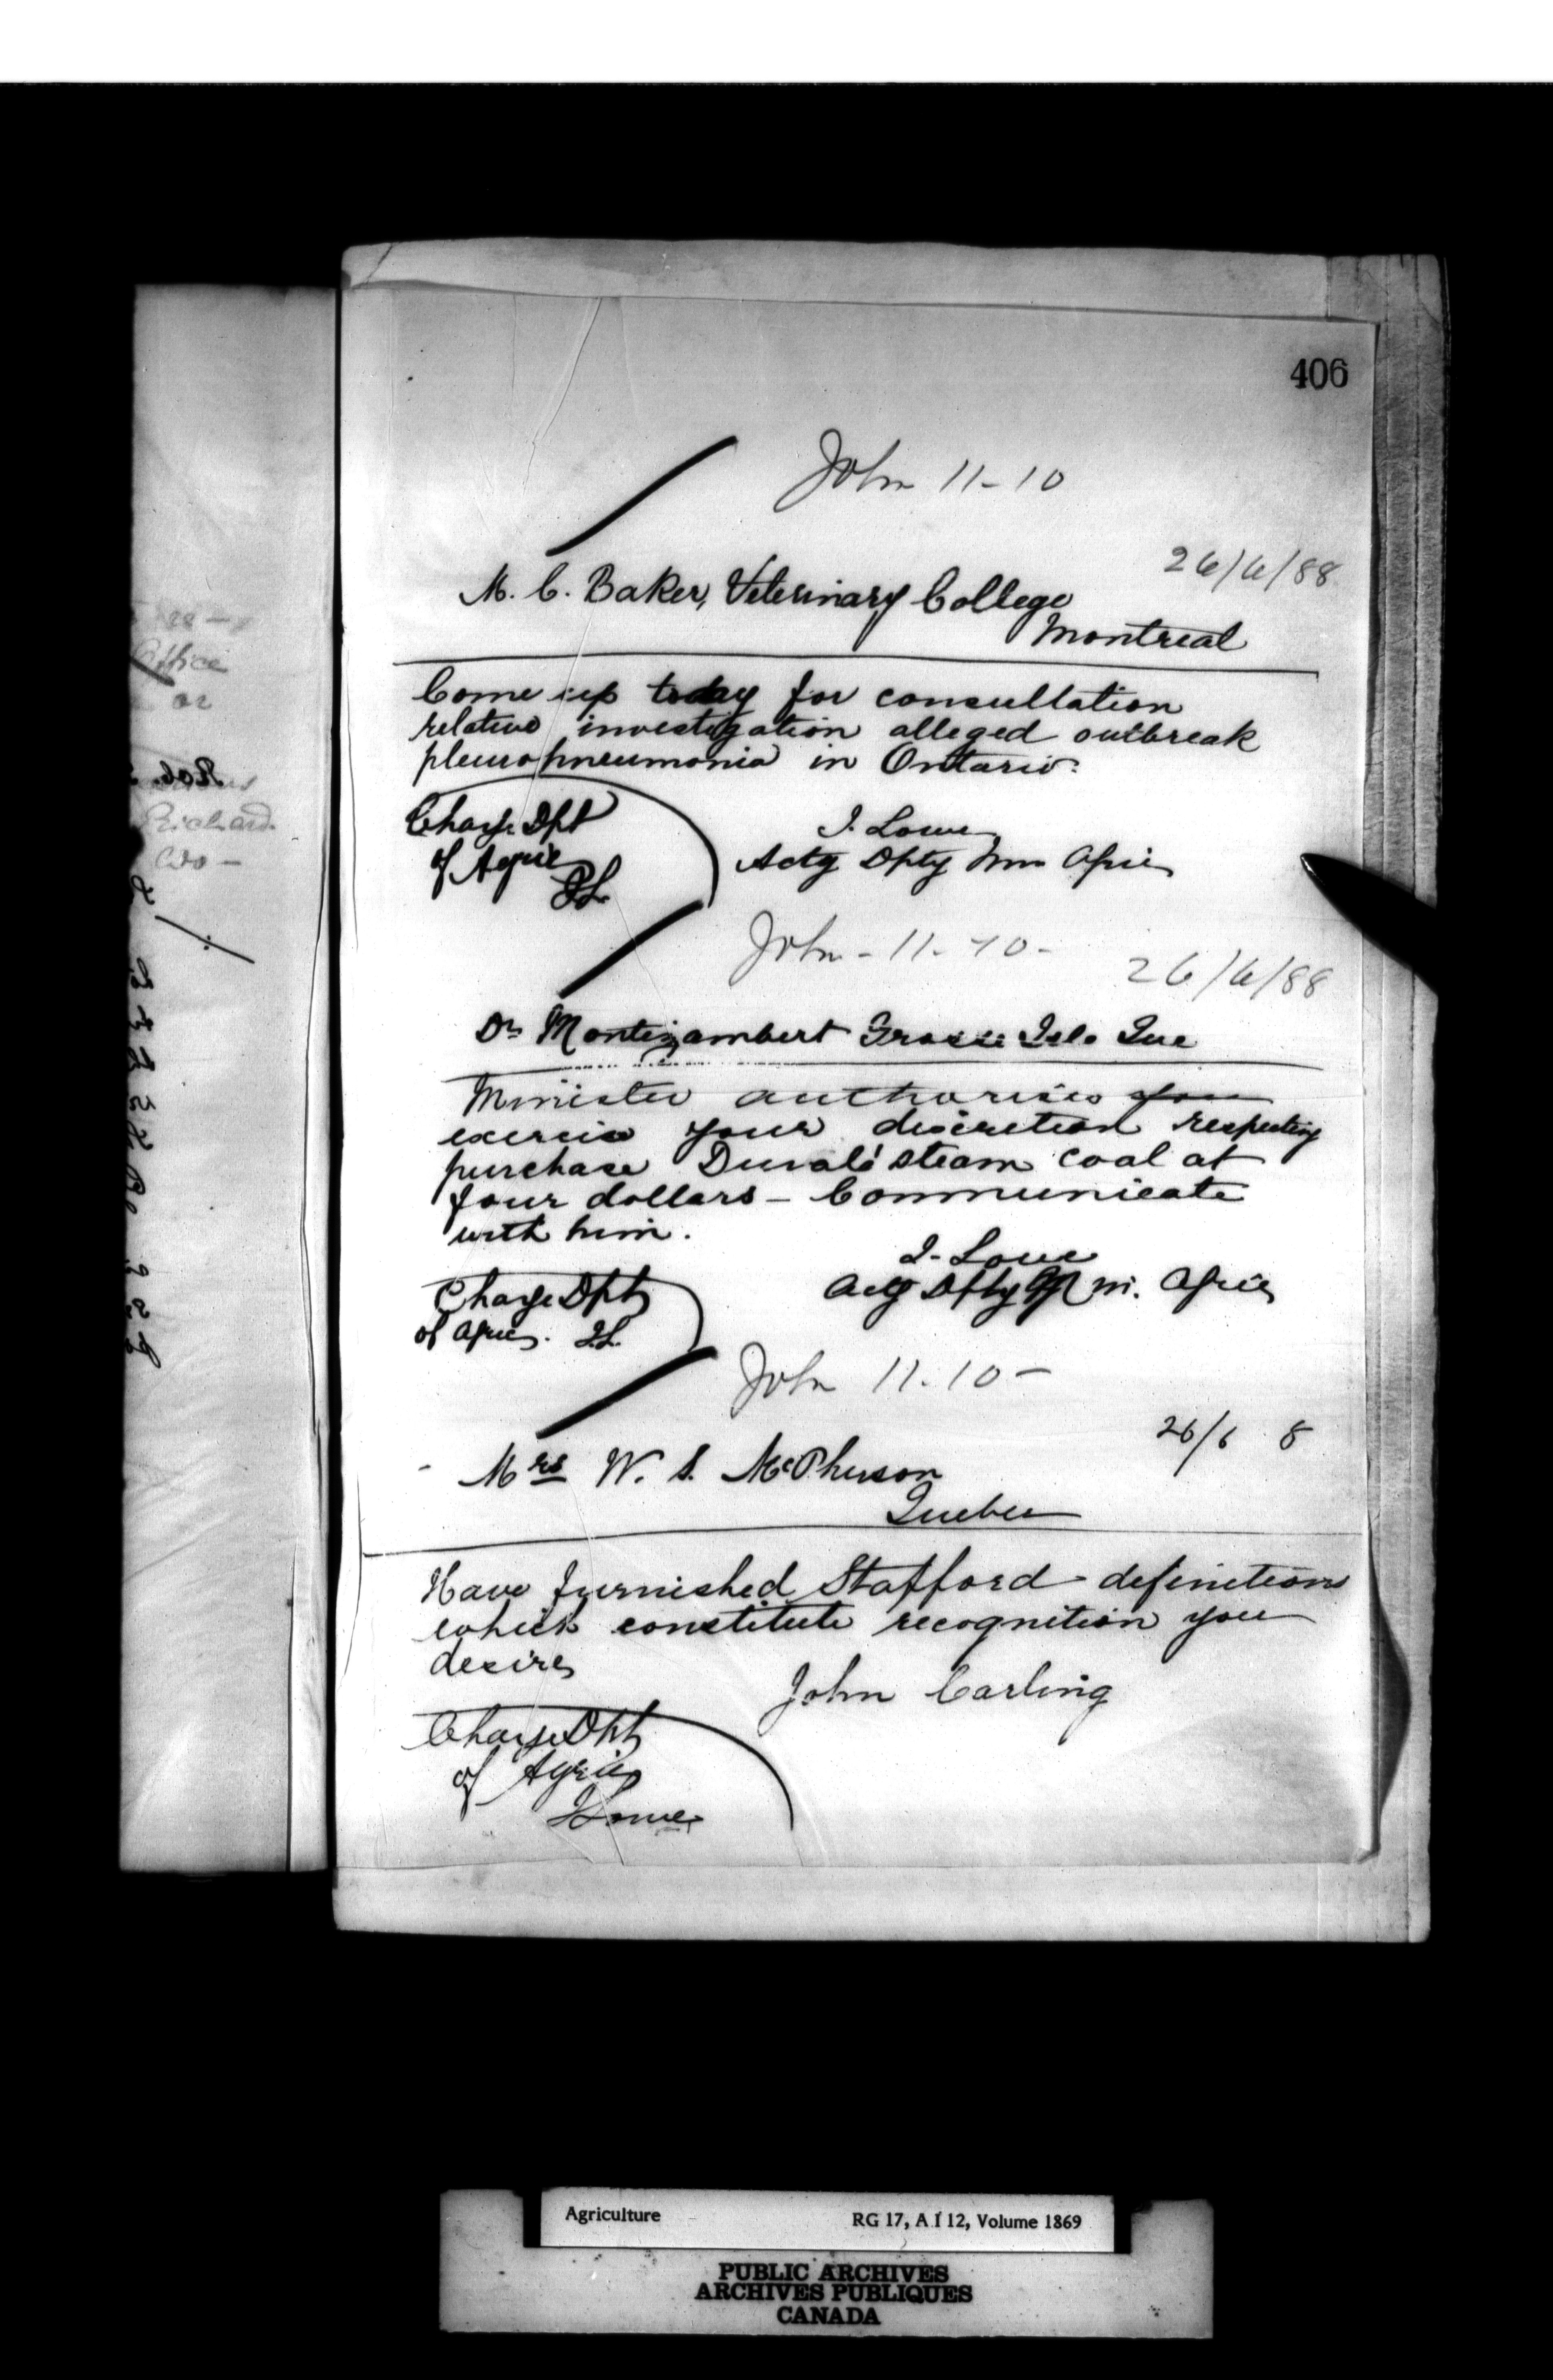 406
John 11-10
26/6/88
M. C. Baker, Veterinary College
Montreal
Come up today for consultation
relative investigation alleged outbreak
pleuropneumonia in Ontario.
Charge Dpt
of Agric
J.L.
J. Lowe
Actg Dpty Min Agric
John - 11-10-
26/6/88
Dr Montizambert Grosse Isle Que
Minister authorises you
exercise your discretion respecting
purchase Duvals' steam coal at
four dollars - Communicate
with him.
J. Lowe
Actg Dpty M. Agric
Charge Dpt
of Agric. J.L.
John 11.10-
26/6 8
Mrs W. S. McPherson
Quebec
Have furnished Stafford definitions
which constitute recognition you
desire
John Carling
Charge Dpt
of Agric
J Lowe
Office
or
Richard
Agriculture
RG 17, A I 12, Volume 1869
PUBLIC ARCHIVES
ARCHIVES PUBLIQUES
CANADA